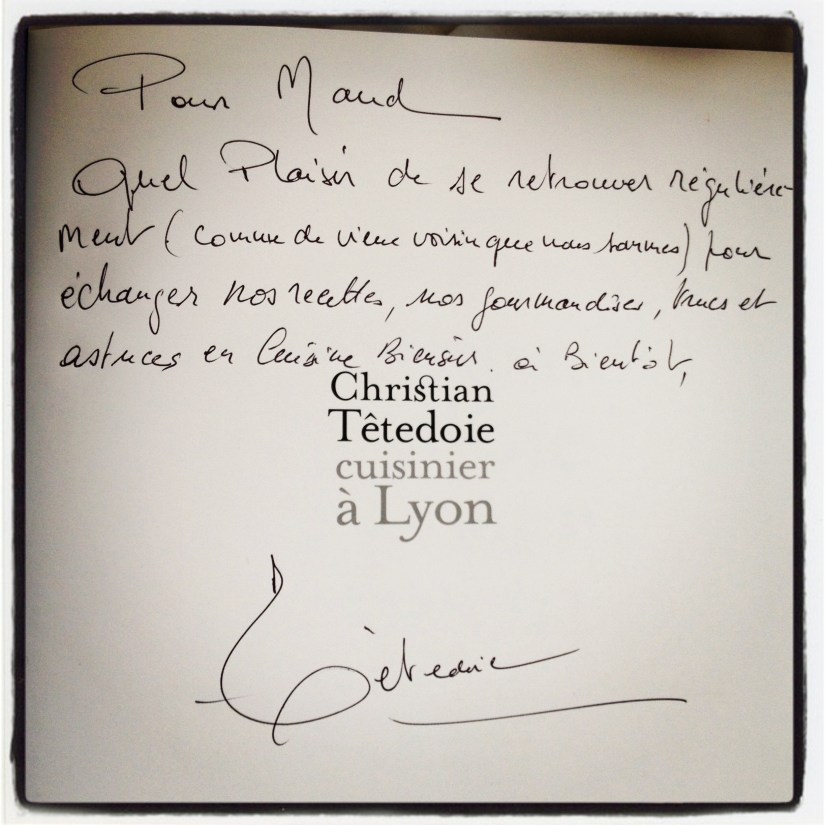 Pour Maud
Quel Plaisir de se retrouver régulière-
ment (comme de vieux voisin que nous sommes) pour
échanger nos recettes, nos gourmandises, trucs et
astuces en Cuisine Biensûr. à Bientôt,
Christian
Têtedoie
cuisinier
à Lyon
Têtedoie